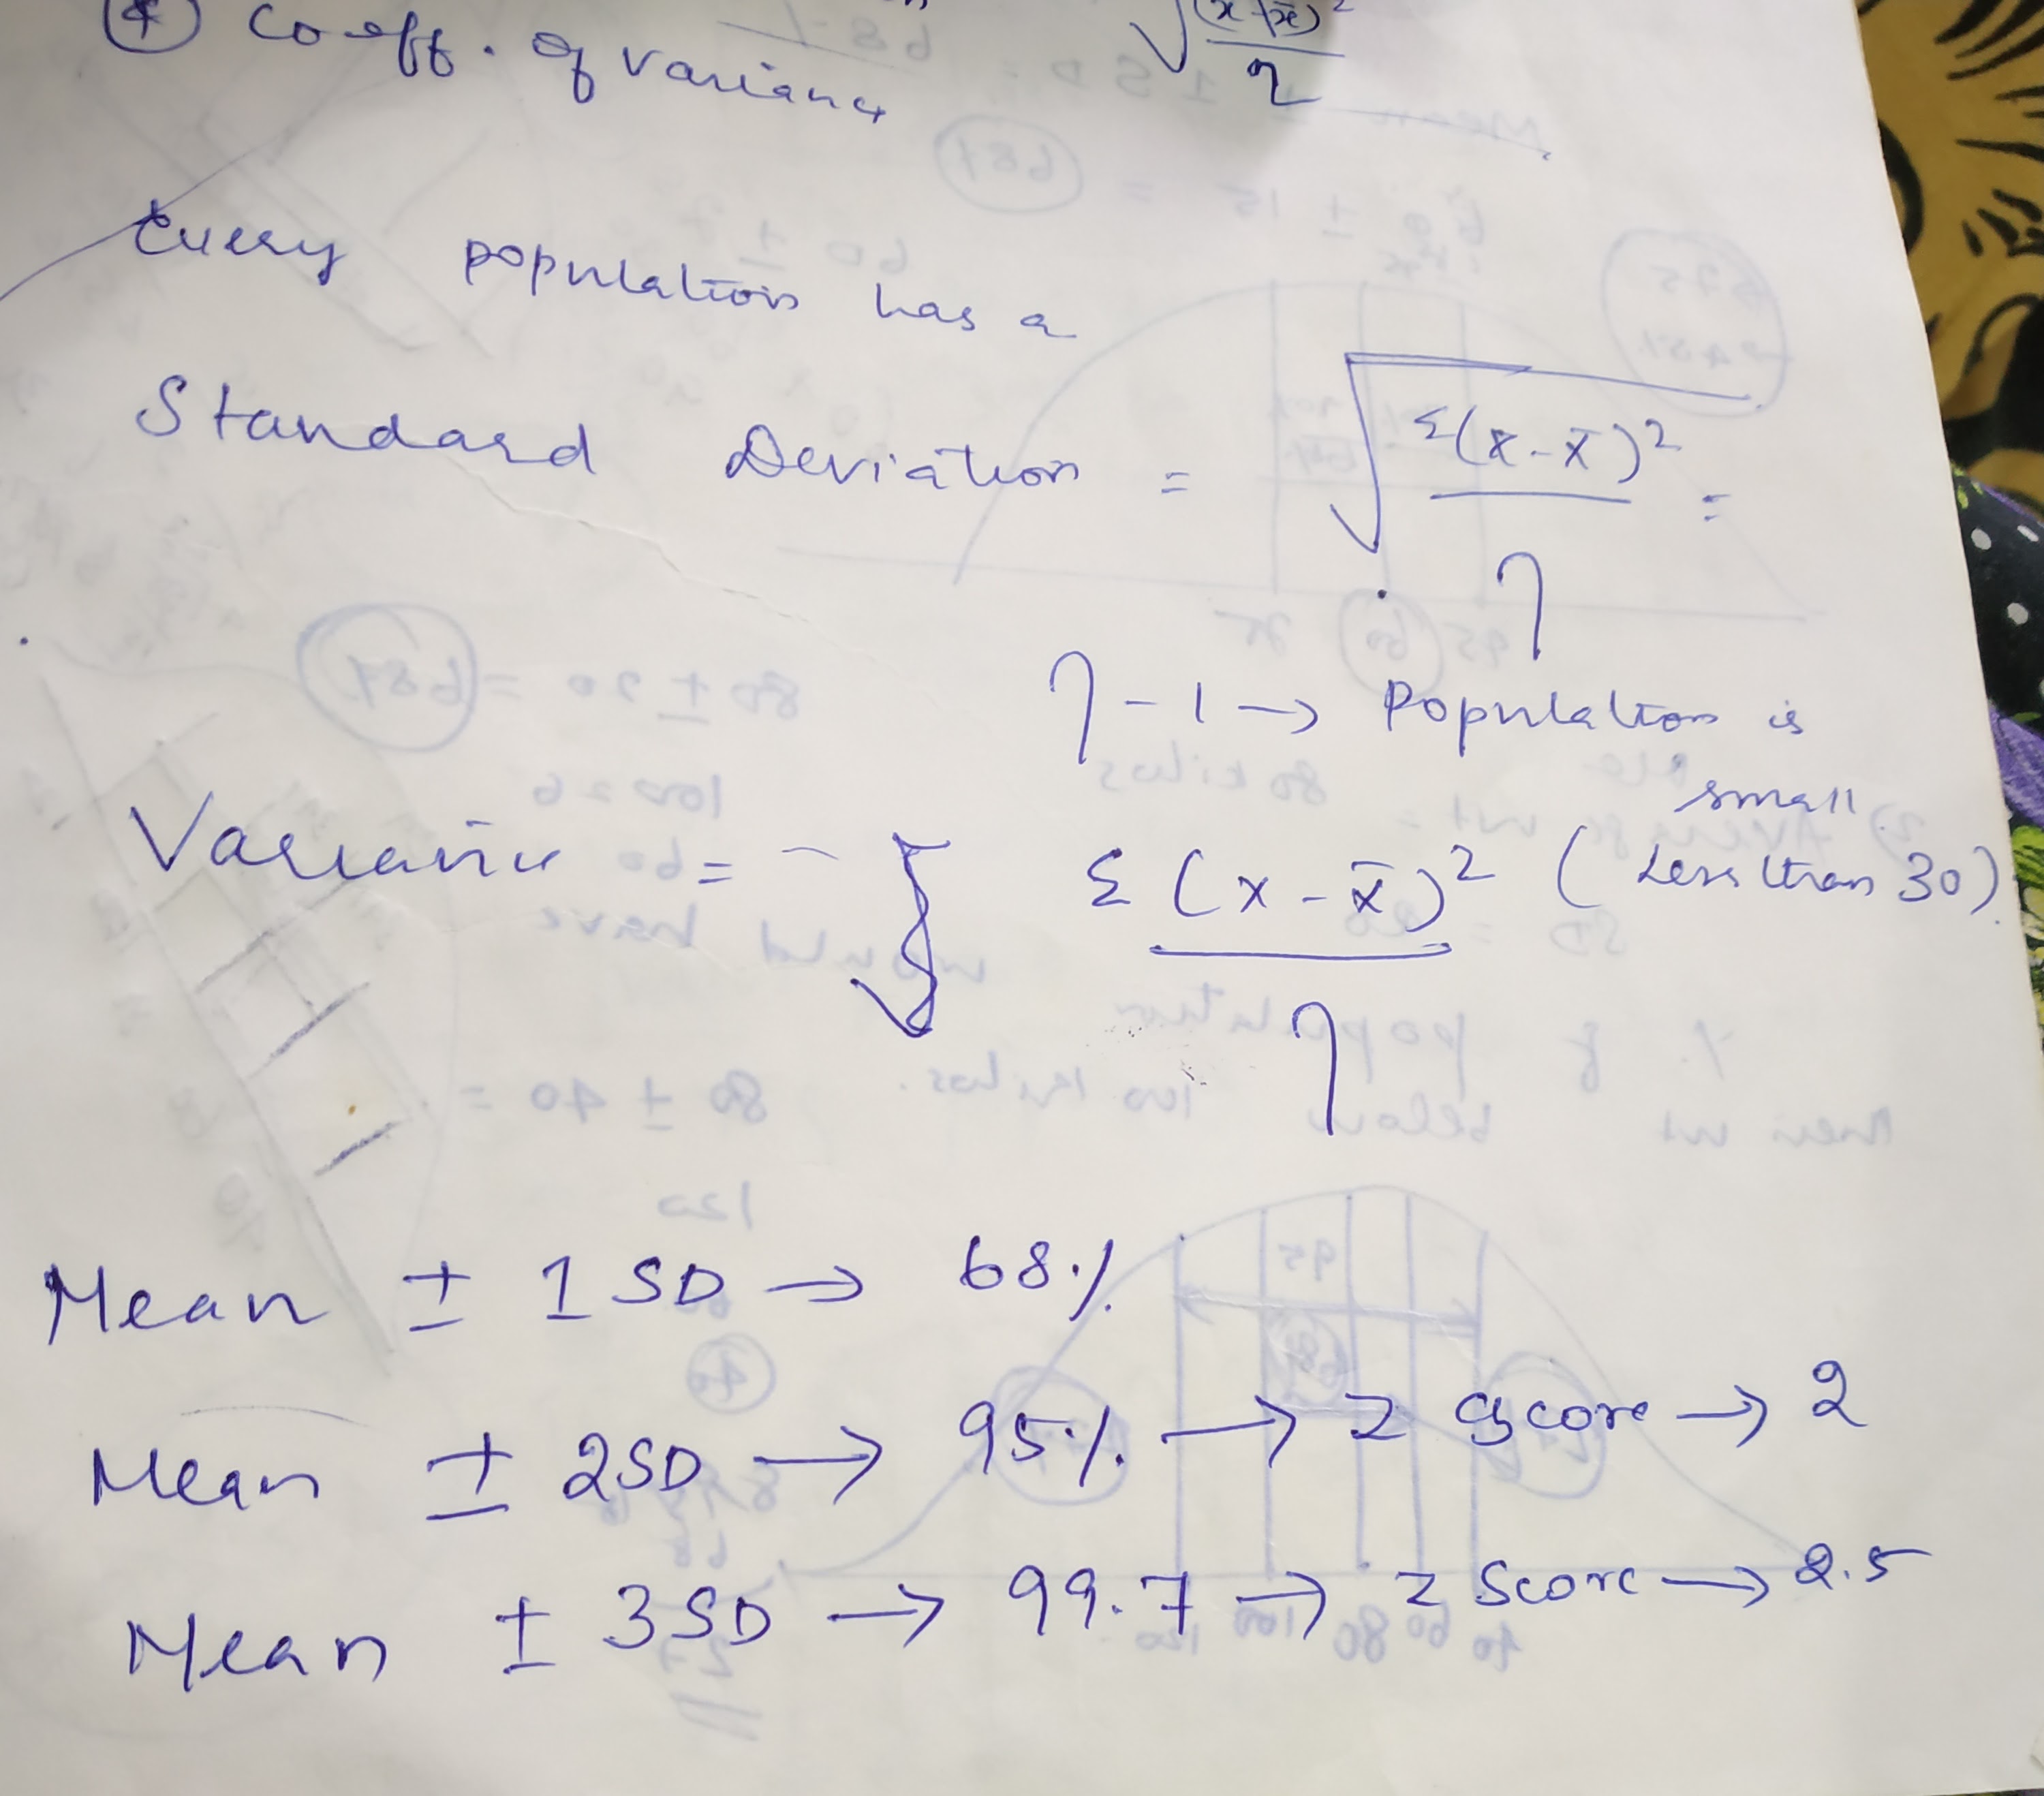 ④ Coeff. of variance
√(x-x̄)²
η
Every population has a
Standard Deviation = √Σ(x-x̄)² =
η
η-1 → Population is
small
Variance = Σ(x-x̄)² (Less than 30)
η
Mean ± 1 SD → 68%
Mean ± 2SD → 95% → Z Score → 2
Mean ± 3SD → 99.7 → Z Score → 2.5